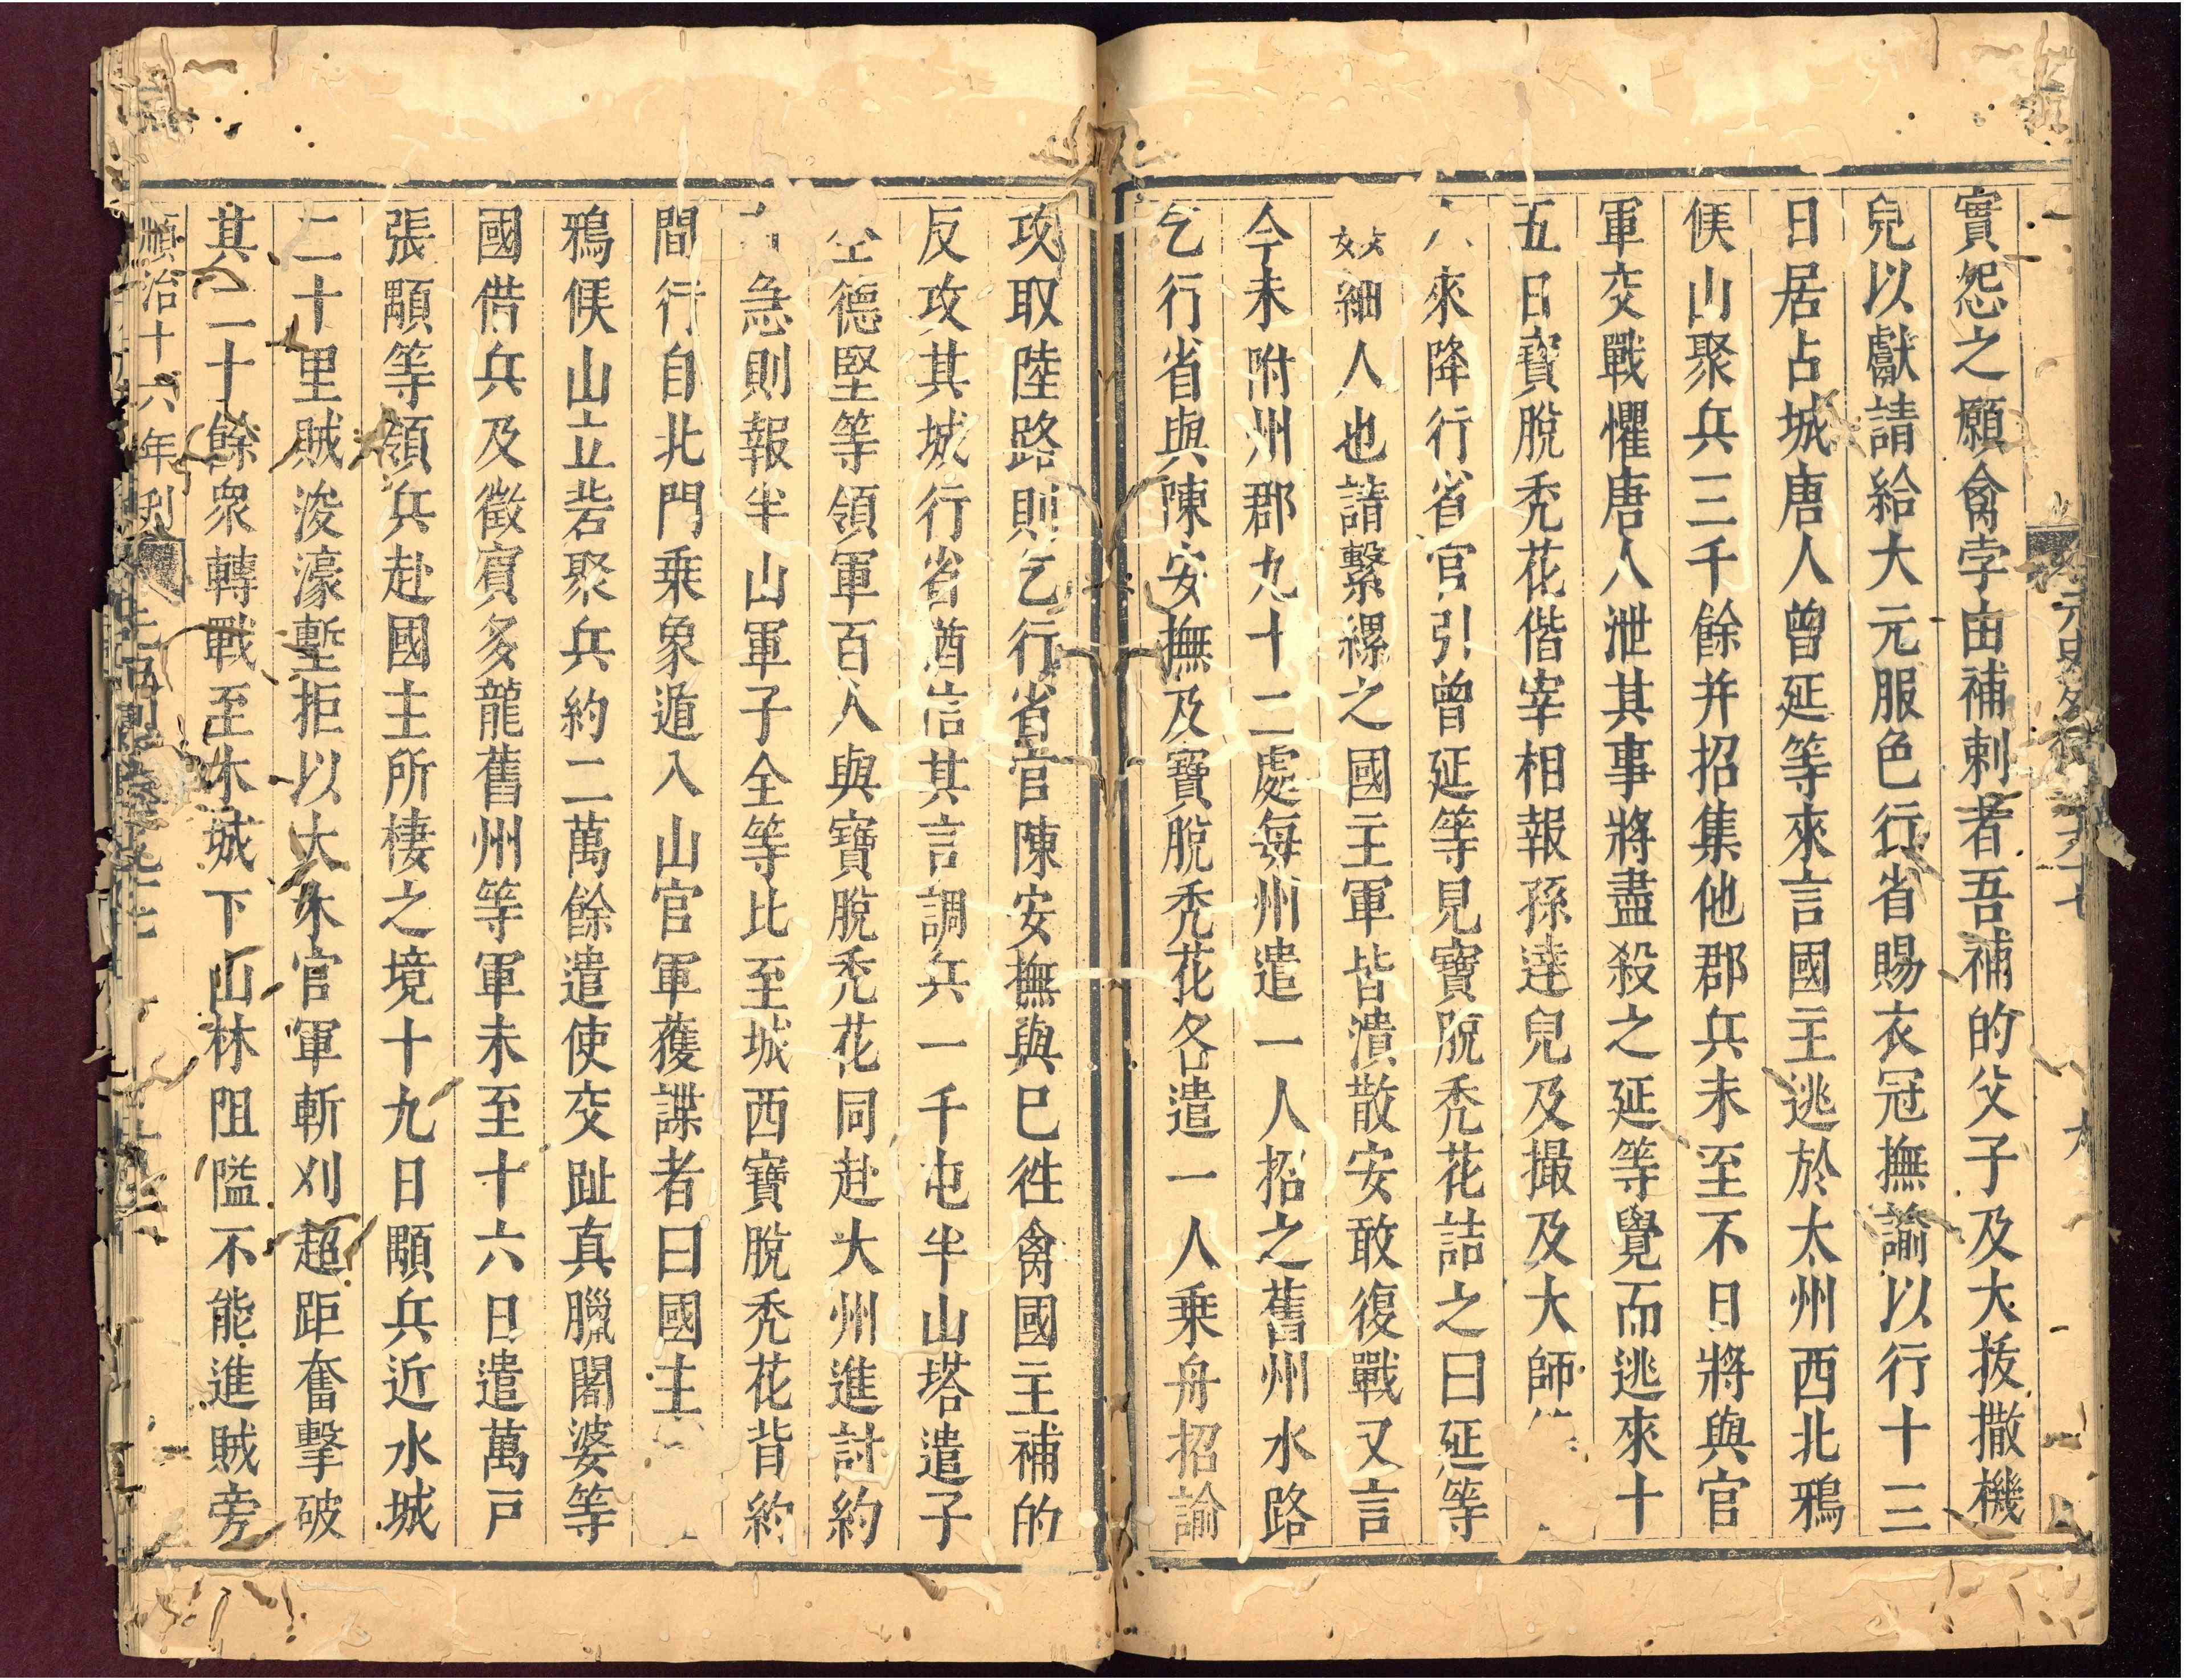 實怨之願禽孛由補剌者吾補的父子及大拔撒機
兒以獻請給大元服色行省賜衣冠撫諭以行十三
日居占城唐人曾延等來言國主逃於太州西北鴉
候山聚兵三千餘并招集他郡兵未至不日將與官
軍交戰懼唐人泄其事將盡殺之延等覺而逃來十
五日寶脫禿花偕宰相報孫達兒及撮及大師
來降行省官引曾延等見寶脫禿花詰之曰延等
姦細人也請繫縲之國主軍皆潰散安敢復戰又言
今未附州郡九十二處每州遣一人招之舊州水路
乞行省與陳安撫及寶脫禿花各遣一人乗舟招諭
攻取陸路則乞行省官陳安撫與已徃禽國主補的
反攻其城行省猶信其言調兵一千屯半山塔遣子
全德堅等領軍百人與寶脫禿花同赴大州進討約
有急則報半山軍子全等比至城西寶脫禿花背約
間行自北門乗象遁入山官軍獲諜者曰國主
鴉候山立砦聚兵約二萬餘遣使交趾真臘闍婆等
國借兵及徵賓多龍舊州等軍未至十六日遣萬戸
張顒等領兵赴國主所棲之境十九日顒兵近水城
二十里賊浚濠塹拒以大木官軍斬刈超距奮擊破
其二千餘衆轉戰至木城下山林阻隘不能進賊旁
順治十六年刊